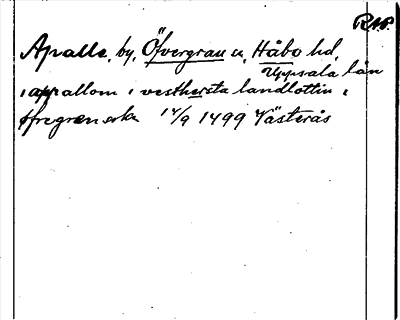 RAP.
Apalle, by, Öfvergran sn, Håbo hd,
Uppsala län
i appallom i vesthersta landlottin i
ofregræn sokn 14/9 1499 Västerås